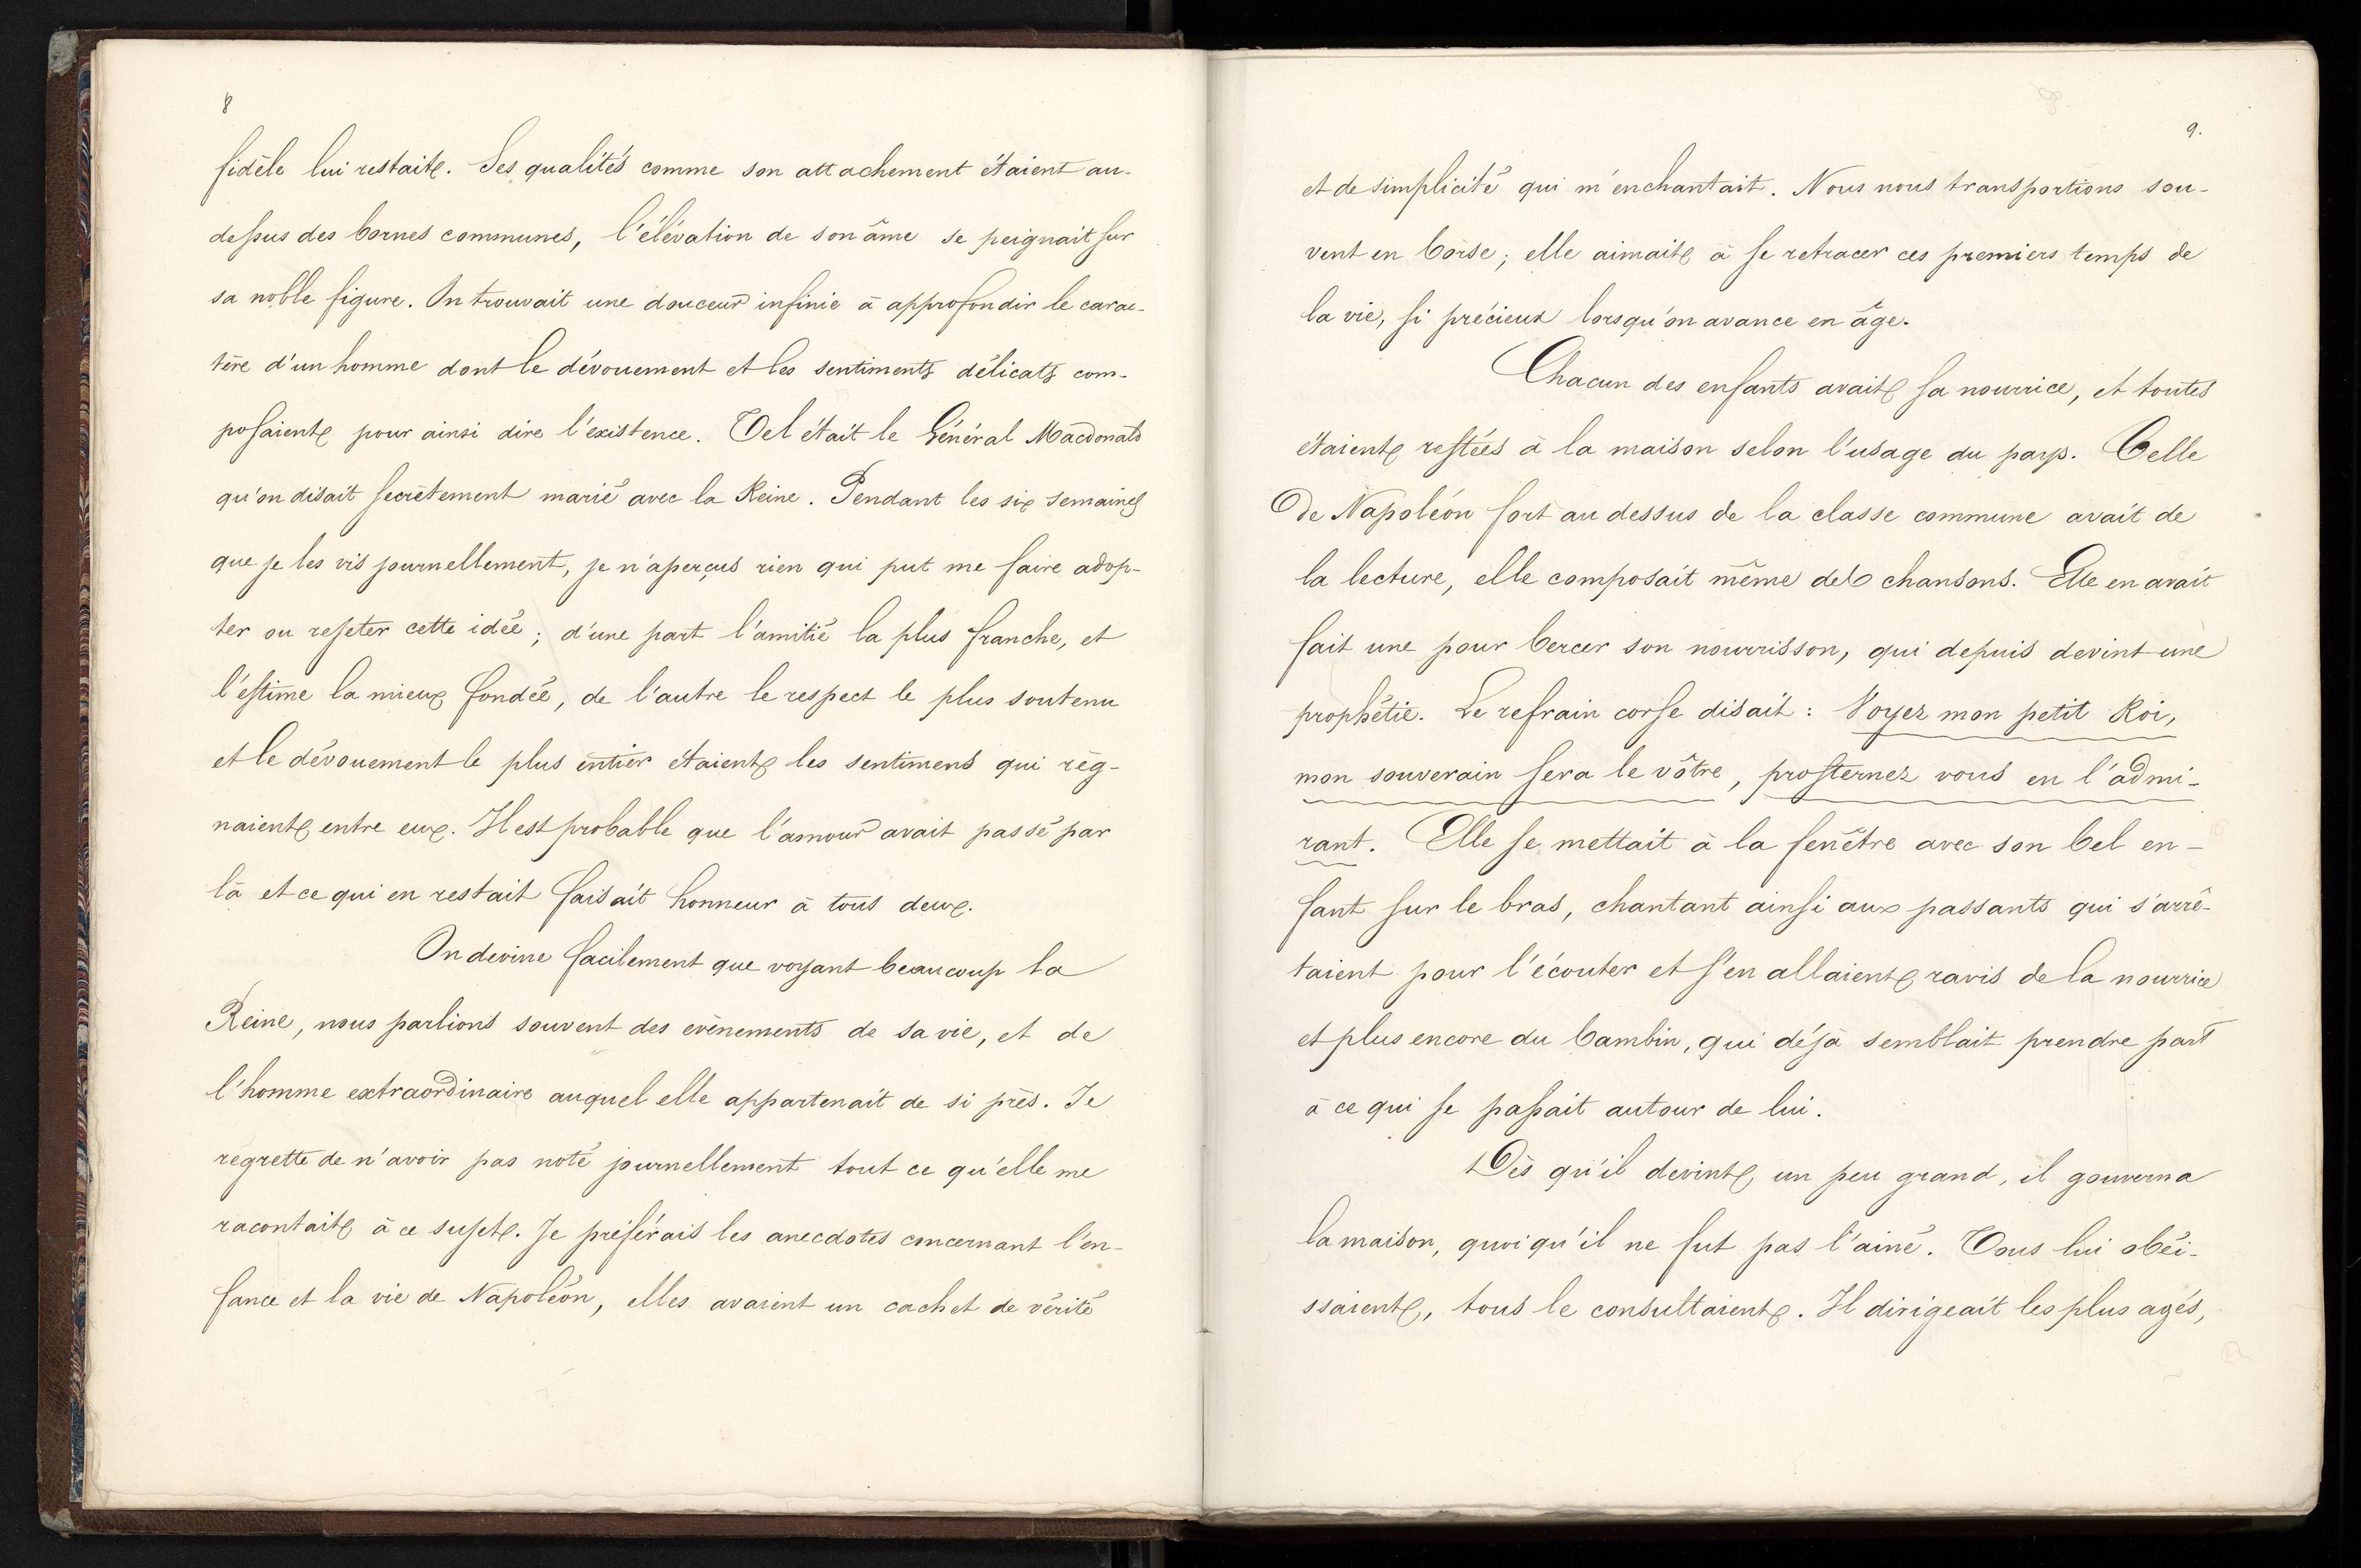 8
fidèle lui restait. Ses qualités comme son attachement étaient au-
dessus des bornes communes, l'élévation de son âme se peignait sur
sa noble figure. On trouvait une douceur infinie à approfondir le carac-
tère d'un homme dont le dévouement et les sentiments délicats com-
posaient pour ainsi dire l'existence. Tel était le Général Macdonald
qu'on disait secrètement marié avec la Reine. Pendant les six semaines
que je les vis journellement, je n'aperçus rien qui put me faire adop-
ter ou rejeter cette idée; d'une part l'amitié la plus franche, et
l'estime la mieux fondée, de l'autre le respect le plus soutenu
et le dévouement le plus entier étaient les sentimens qui règ-
naient entre eux. Il est probable que l'amour avait passé par
là et ce qui en restait faisait honneur à tous deux.
On devine facilement que voyant beaucoup la
Reine, nous parlions souvent des evènements de sa vie, et de
l'homme extraordinaire auquel elle appartenait de si près. Je
regrette de n'avoir pas noté journellement tout ce qu'elle me
racontait à ce sujet. Je préférais les anecdotes concernant l'en-
fance et la vie de Napoléon, elles avaient un cachet de vérité
9.
et de simplicité qui m'enchantait. Nous nous transportions sou-
vent en Corse; elle aimait à se retracer ces premiers temps de
la vie, si précieux lorsqu'on avance en âge.
Chacun des enfants avait sa nourrice, et toutes
étaient restées à la maison selon l'usage du pays. Celle
de Napoléon fort au dessus de la classe commune avait de
la lecture, elle composait même des chansons. Elle en avait
fait une pour bercer son nourrisson, qui depuis devint une
prophétie. Le refrain corse disait: Voyez mon petit Roi,
mon souverain sera le vôtre, prosternez vous en l'admi-
rant. Elle se mettait à la fenêtre avec son bel en-
fant sur le bras, chantant ainsi aux passants qui s'arrê-
taient pour l'écouter et s'en allaient ravis de la nourrice
et plus encore du bambin, qui déjà semblait prendre part
à ce qui se passait autour de lui.
Dès qu'il devint un peu grand, il gouverna
la maison, quoiqu'il ne fut pas l'ainé. Tous lui obéi-
ssaient, tous le consultaient. Il dirigeait les plus agés,